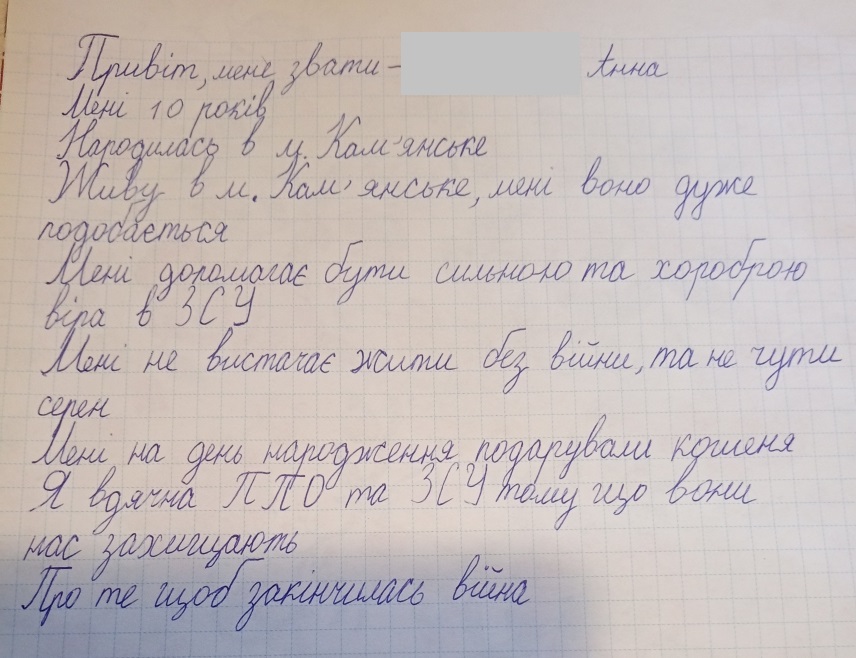 Привіт, мене звати - Анна
Мені 10 років
Народилась в м. Кам'янське
Живу в м. Кам'янське, мені воно дуже
подобається
Мені допомагає бути сильною та хороброю
віра в ЗСУ
Мені не вистачає жити без війни, та не чути
серен
Мені на день народження подарували кошеня
Я вдячна ППО та ЗСУ тому що вони
нас захищають
Про те щоб закінчилась війна